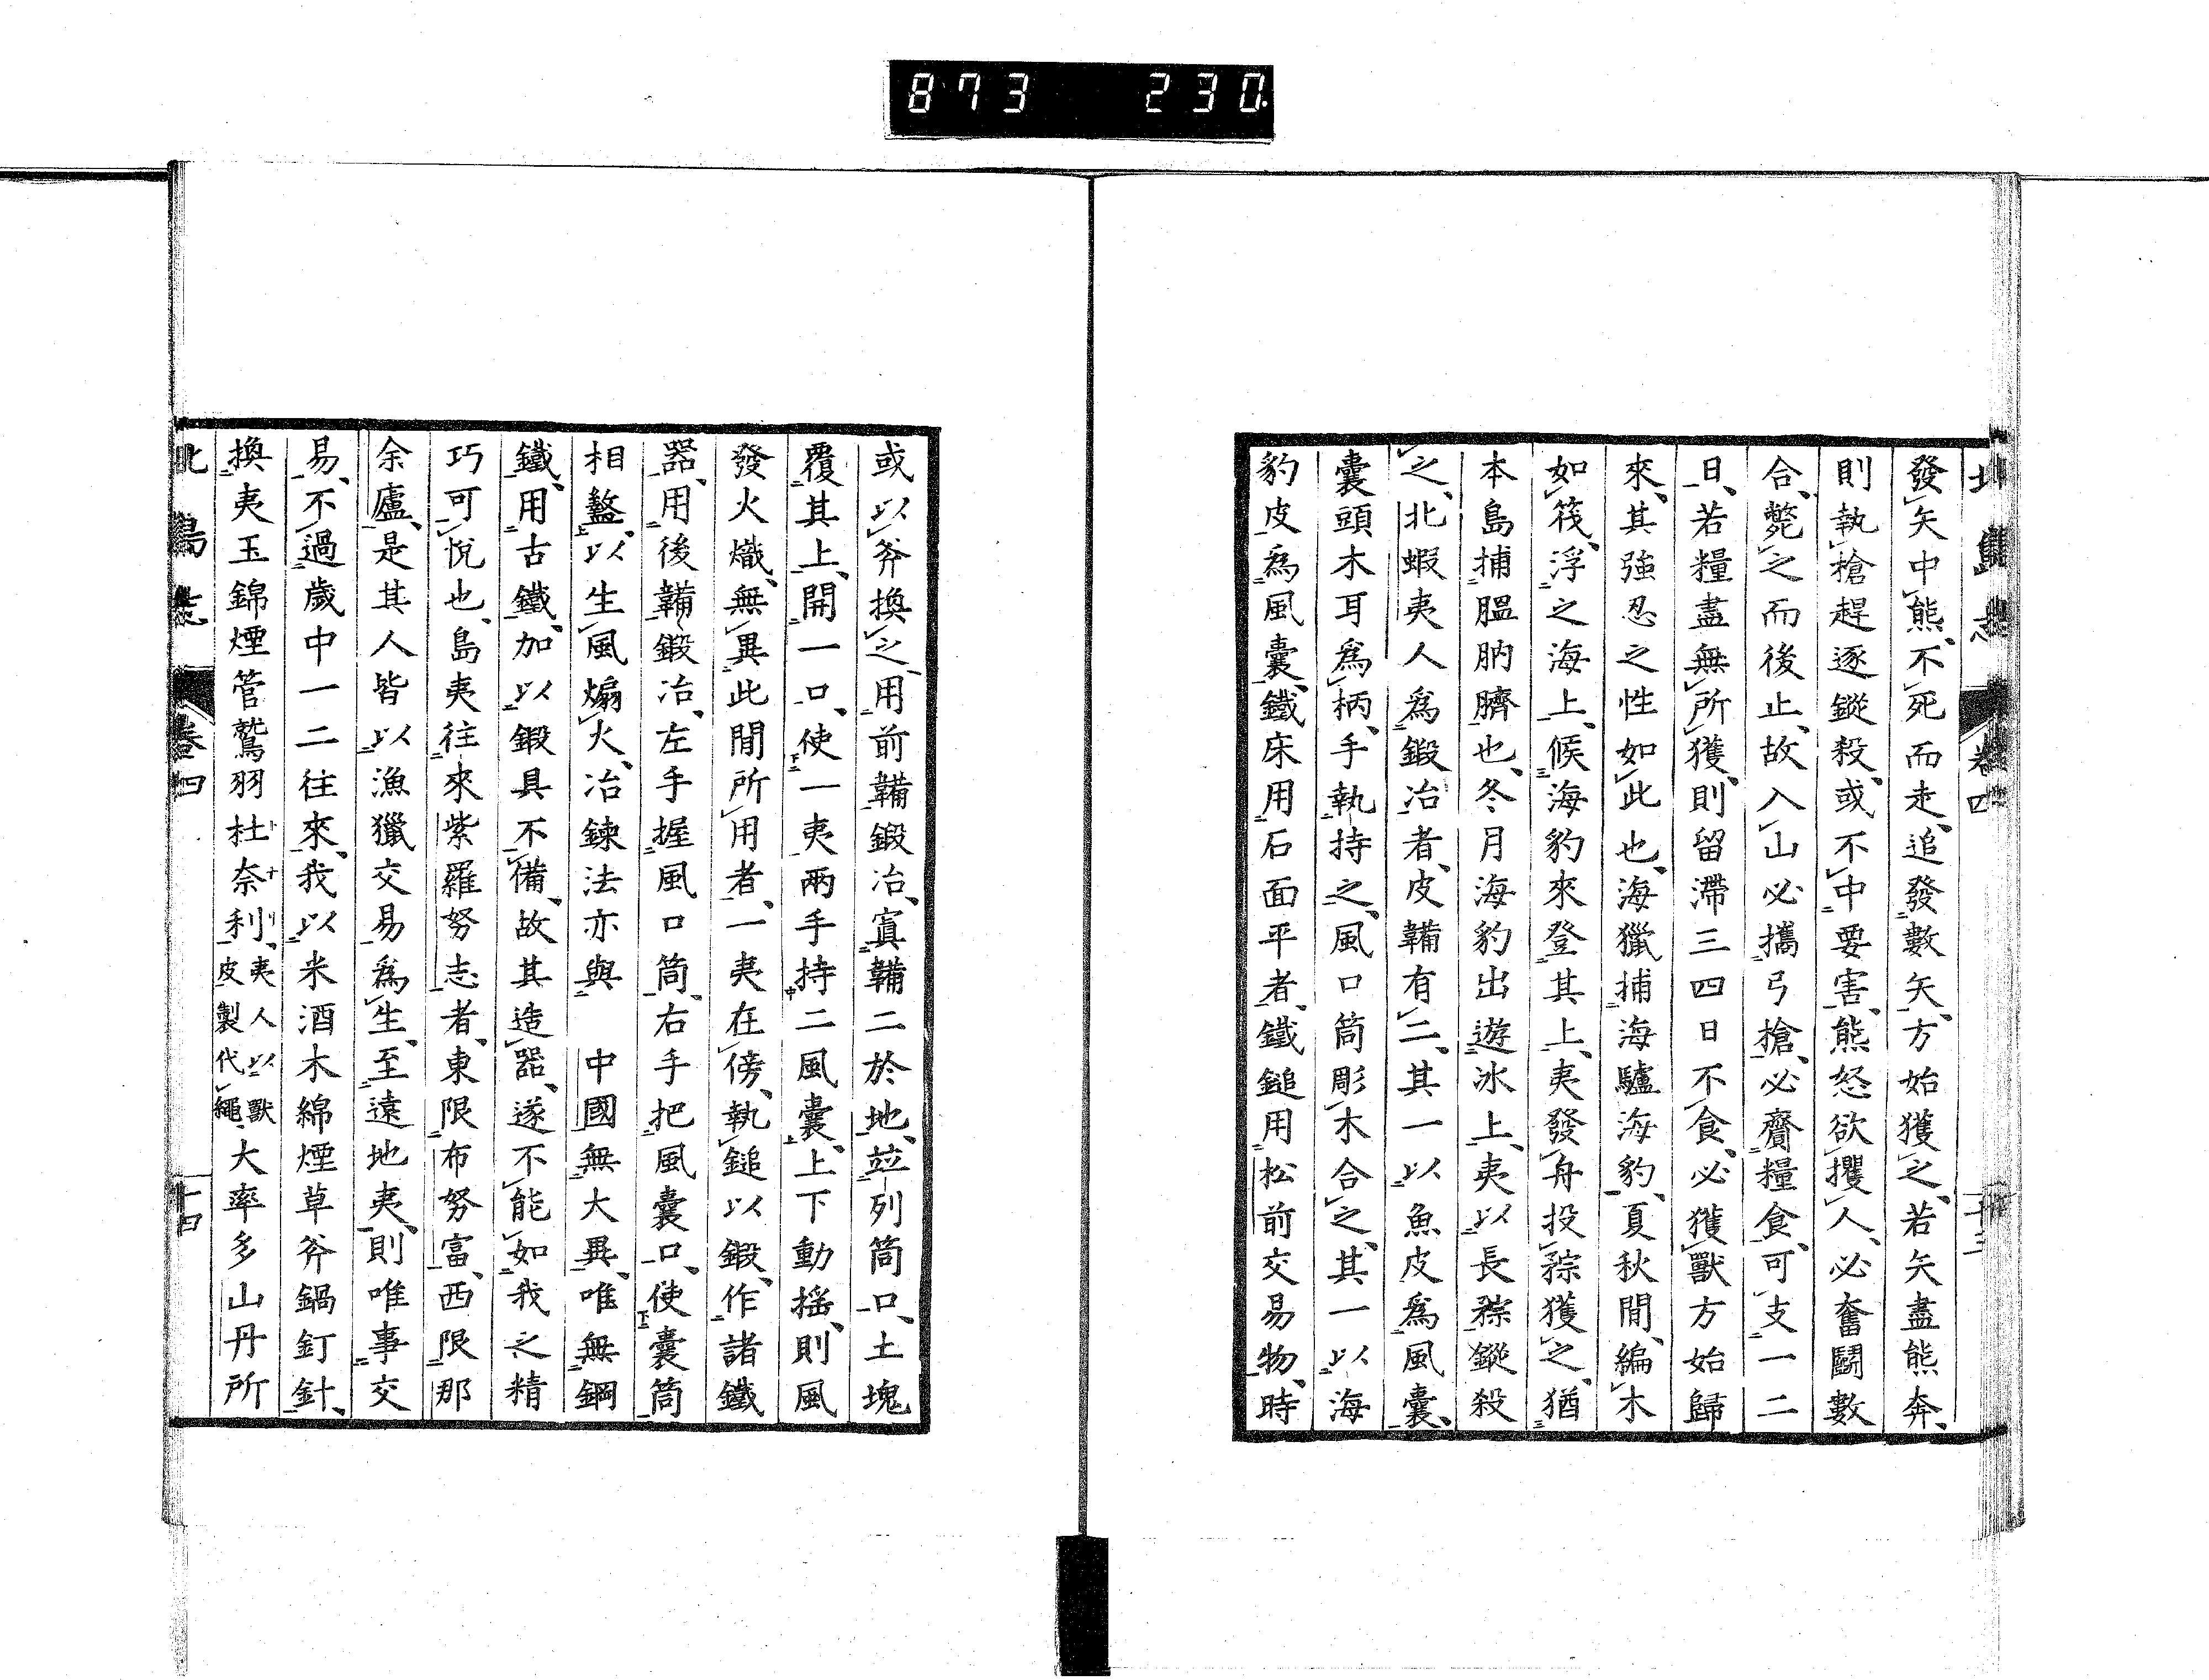 873 230
北島志 卷四
發矢中熊、不死而走、追發數矢、方始獲之、若矢盡熊奔、
則執槍趕逐鏦殺、或不中要害、熊怒欲攫人、必奮鬪數
合、斃之而後止、故入山必攜弓槍、必齎糧食、可支一二
日、若糧盡無所獲、則留滯三四日不食、必獲獸方始歸
來、其強忍之性如此也、海獵捕海驢海豹、夏秋間、編木
如筏、浮之海上、候海豹來登其上、夷發舟投䅹獲之、猶
本島捕膃肭臍也、冬月海豹出遊冰上、夷以長䅹鏦殺
之、北蝦夷人爲鍛冶者、皮韛有二、其一以魚皮爲風囊、
囊頭木耳爲柄、手執持之、風口筒彫木合之、其一以海
豹皮爲風囊、鐵床用石面平者、鐵鎚用松前交易物、時
或以斧換之、用前韛鍛冶、寘韛二於地、竝列筒口、土塊
覆其上、開一口、使一夷兩手持二風囊、上下動搖、則風
發火熾、無異此間所用者、一夷在傍、執鎚以鍛、作諸鐵
器、用後韛鍛冶、左手握風口筒、右手把風囊口、使囊筒
相盭、以生風煽火、冶鍊法亦與 中國無大異、唯無鋼
鐵、用古鐵、加以鍛具不備、故其造器、遂不能如我之精
巧可悅也、島夷往來紫羅努志者、東限布努富、西限那
余盧、是其人皆以漁獵交易爲生、至遠地夷、則唯事交
易、不過歲中一二往來、我以米酒木綿煙草斧鍋釘針、
換夷玉錦煙管鷲羽杜奈利、夷人以獸皮製代繩、大率多山丹所
北島志 卷四 十四